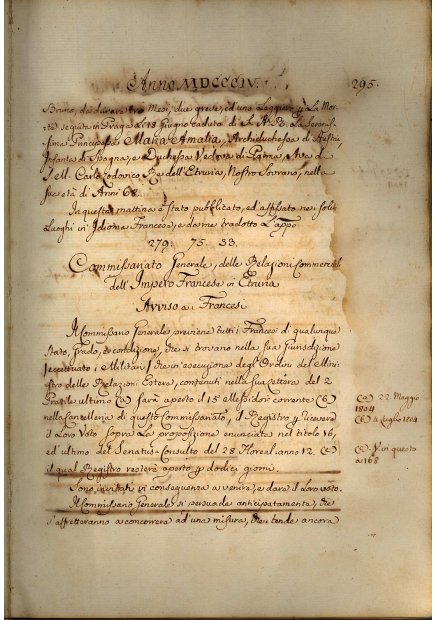 Anno MDCCCIV.
295.
Bruno, da durare tre Mesi, due grevi, ed uno Leggiero, p. La Mor=
te seguita in Praga a' 18 Giugno caduto di S. A. R. La Serenis=
sima Principessa Maria Amalia, Archiduchessa d'Austria,
Infanta di Spagna, e Duchessa Vedova di Parma, Ava di
S. M. Carlo Lodovico Re dell'Etruria Nostro Sovrano, nella
sua età di Anni 68.
In questa mattina è stato pubblicato, ed affissato nei soliti
Luoghi in Idioma Francese, e da me tradotto L'app.o
279. 75. 53.
Commissariato Generale, delle Relazioni Commerciali
dell'Impero Francese in Etruria
Avviso a i Francesi
Il Commissario Generale previene tutti i Francesi di qualunque
Stato, Grado, e condizione, che si trovano nella sua Giurisdizione
(eccettuati i Militari) che in esecuzione degl'Ordini del Mini=
stro delle Relazioni Estere, contenuti nella sua Lettera del 2
Pratile ultimo (a) sarà aperto il 15 Messidor corrente (b)
nella Cancelleria di questo Commissariato, il Registro p. ricevere
il Loro Voto sopra La proposizione enunciata nel titolo 16,
ed ultimo del Senatus-Consulto del 28 Floreal anno 12. (c)
il qual Registro resterà aperto p. dodici giorni.
Sono invitati in conseguenza a venire, e dare il Loro voto.
Il Commissario Generale si persuade anticipatamente, che
s'affretteranno a concorrere ad una misura, che tende ancora
(a) 22. Maggio
1804
(b) 4 Luglio 1804
(c) V. in questo
a 168